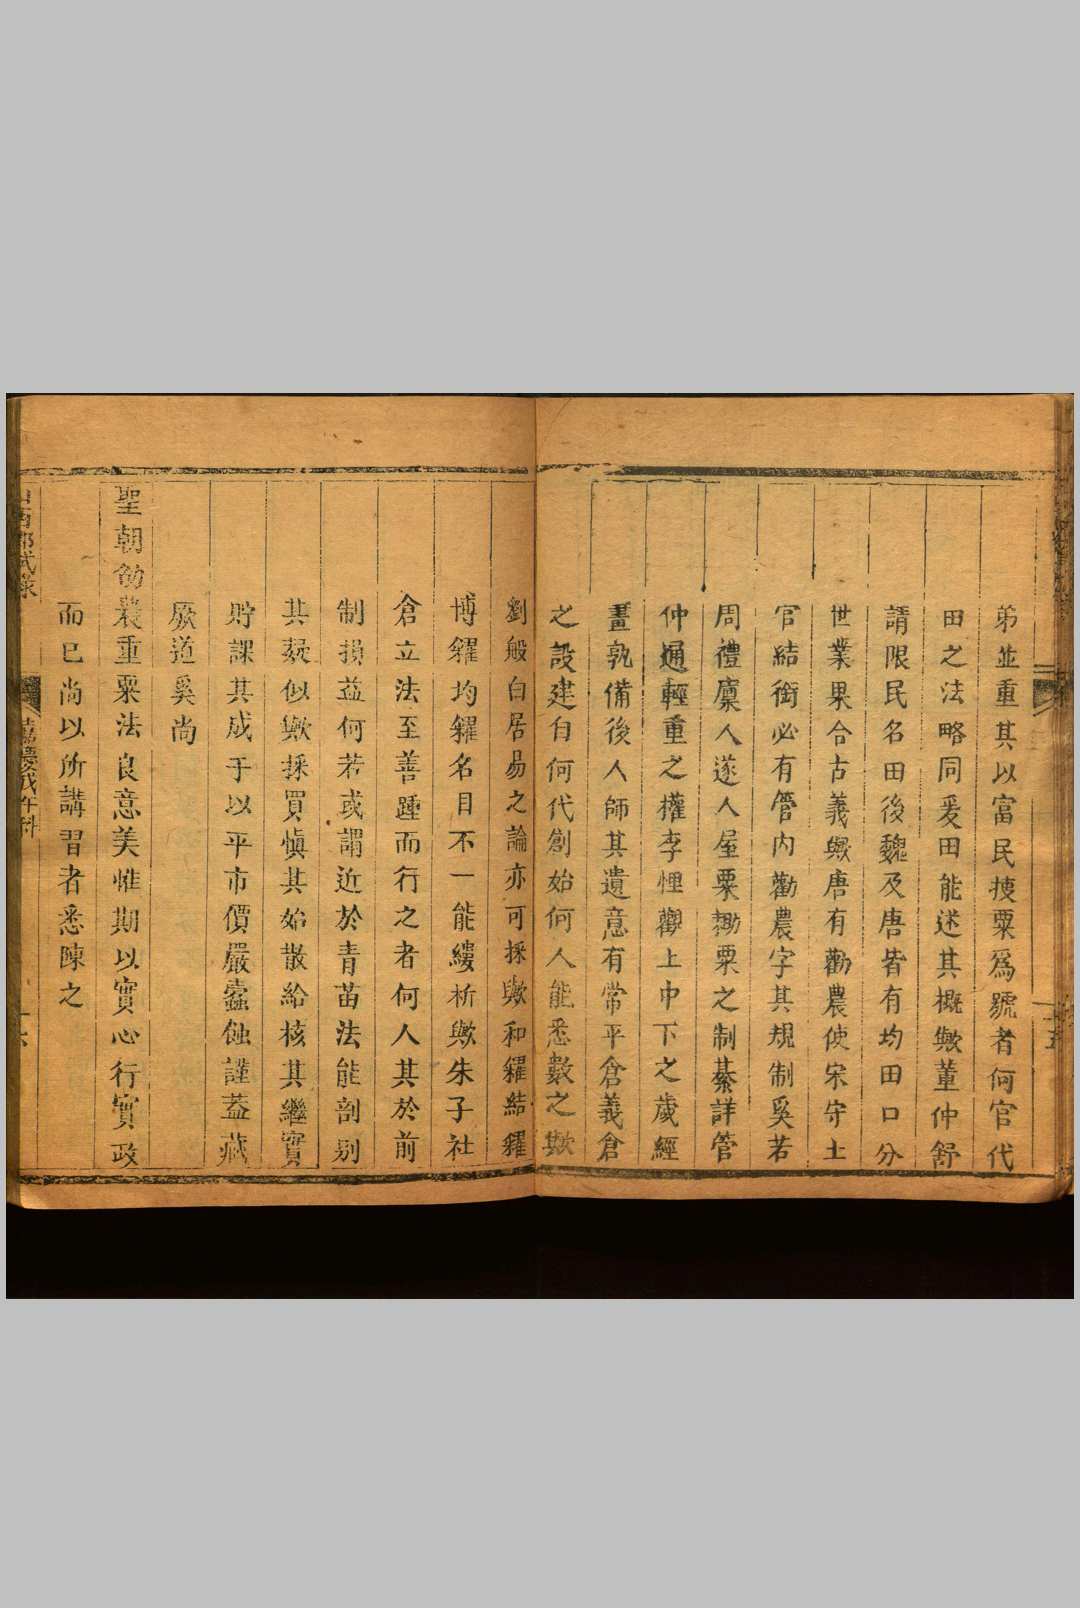 弟並重其以富民𢯱粟爲號者何官代
田之法略同爰田能述其概歟董仲舒
請限民名田後魏及唐皆有均田口分
世業果合古義歟唐有勸農使宋守土
官結銜必有管內勸農字其規制奚若
周禮廩人遂人屋粟耡粟之制綦詳管
仲通輕重之權李悝觀上中下之歲經
畫孰備後人師其遺意有常平倉義倉
之設建自何代創始何人能悉數之歟
劉般白居易之論亦可採歟和糴結糴
博糴均糴名目不一能縷析歟朱子社
倉立法至善踵而行之者何人其於前
制損益何若或謂近於青苗法能剖别
其疑似歟採買愼其始散給核其繼實
貯課其成于以平市價嚴蠹蝕謹葢藏
厥道奚尚
聖朝劭農重粟法良意美惟期以實心行實政
而已尚以所講習者悉陳之
鄉試錄
嘉慶戊午科